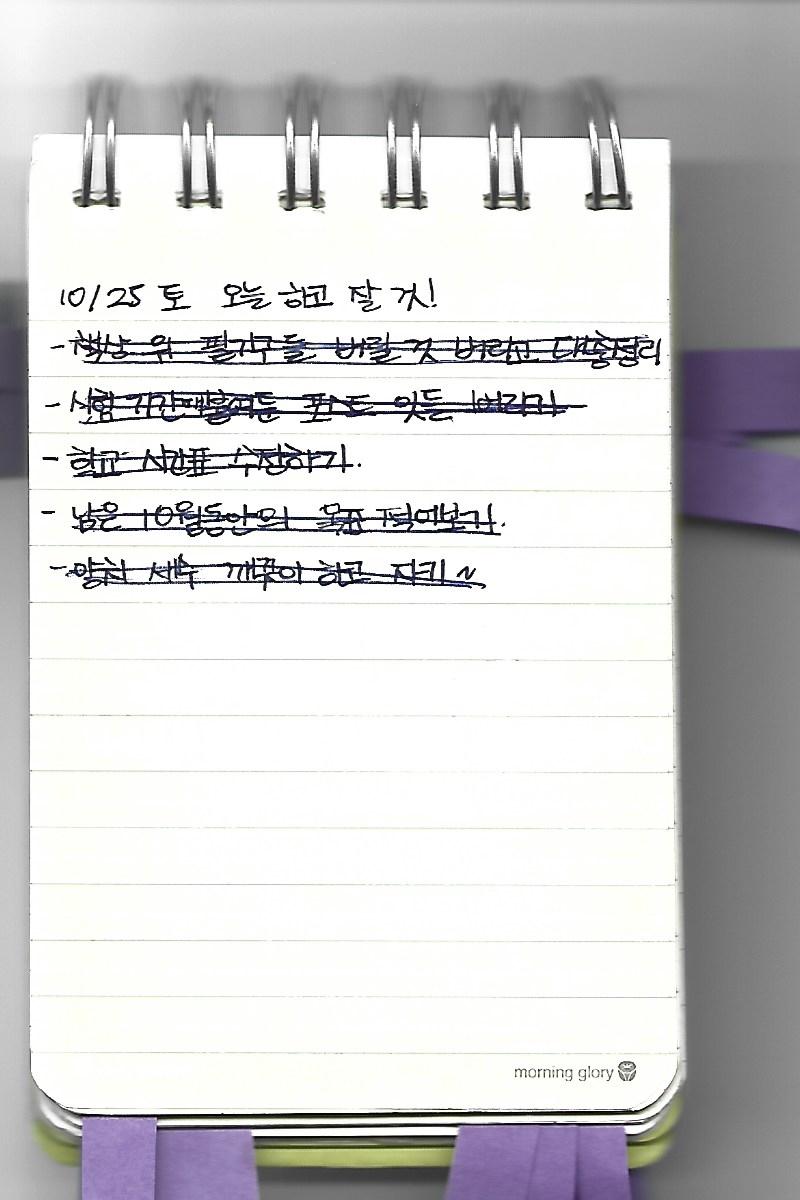 10/25 토 오늘 하고 잘 것!
- 책상 위 필기구들 버릴 것 버리고 대충정리
- 시험 기간 포스트 잇들 버리기
- 학교 시간표 수정하기.
- 남은 10월동안의 목표 적어보기.
- 양치 세수 깨끗이 하고 자기~
morning glory